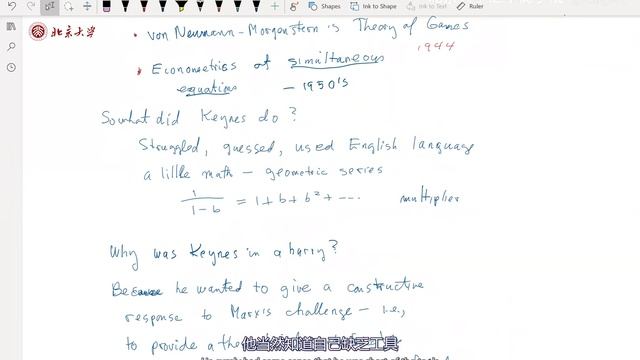 Shapes
Ink to Shape
Ink to Text
Ruler
北京大学
• von Neumann-Morgenstern's Theory of Games
1944
• Econometrics of simultaneous
equations — 1950's
So what did Keynes do?
Struggled, guessed, used English language
a little math — geometric series
1/(1-b) = 1+b+b²+---- multiplier
Why was Keynes in a hurry?
Because he wanted to give a constructive
response to Marx's challenge — i.e.,
to provide a
他当然知道自己缺乏工具